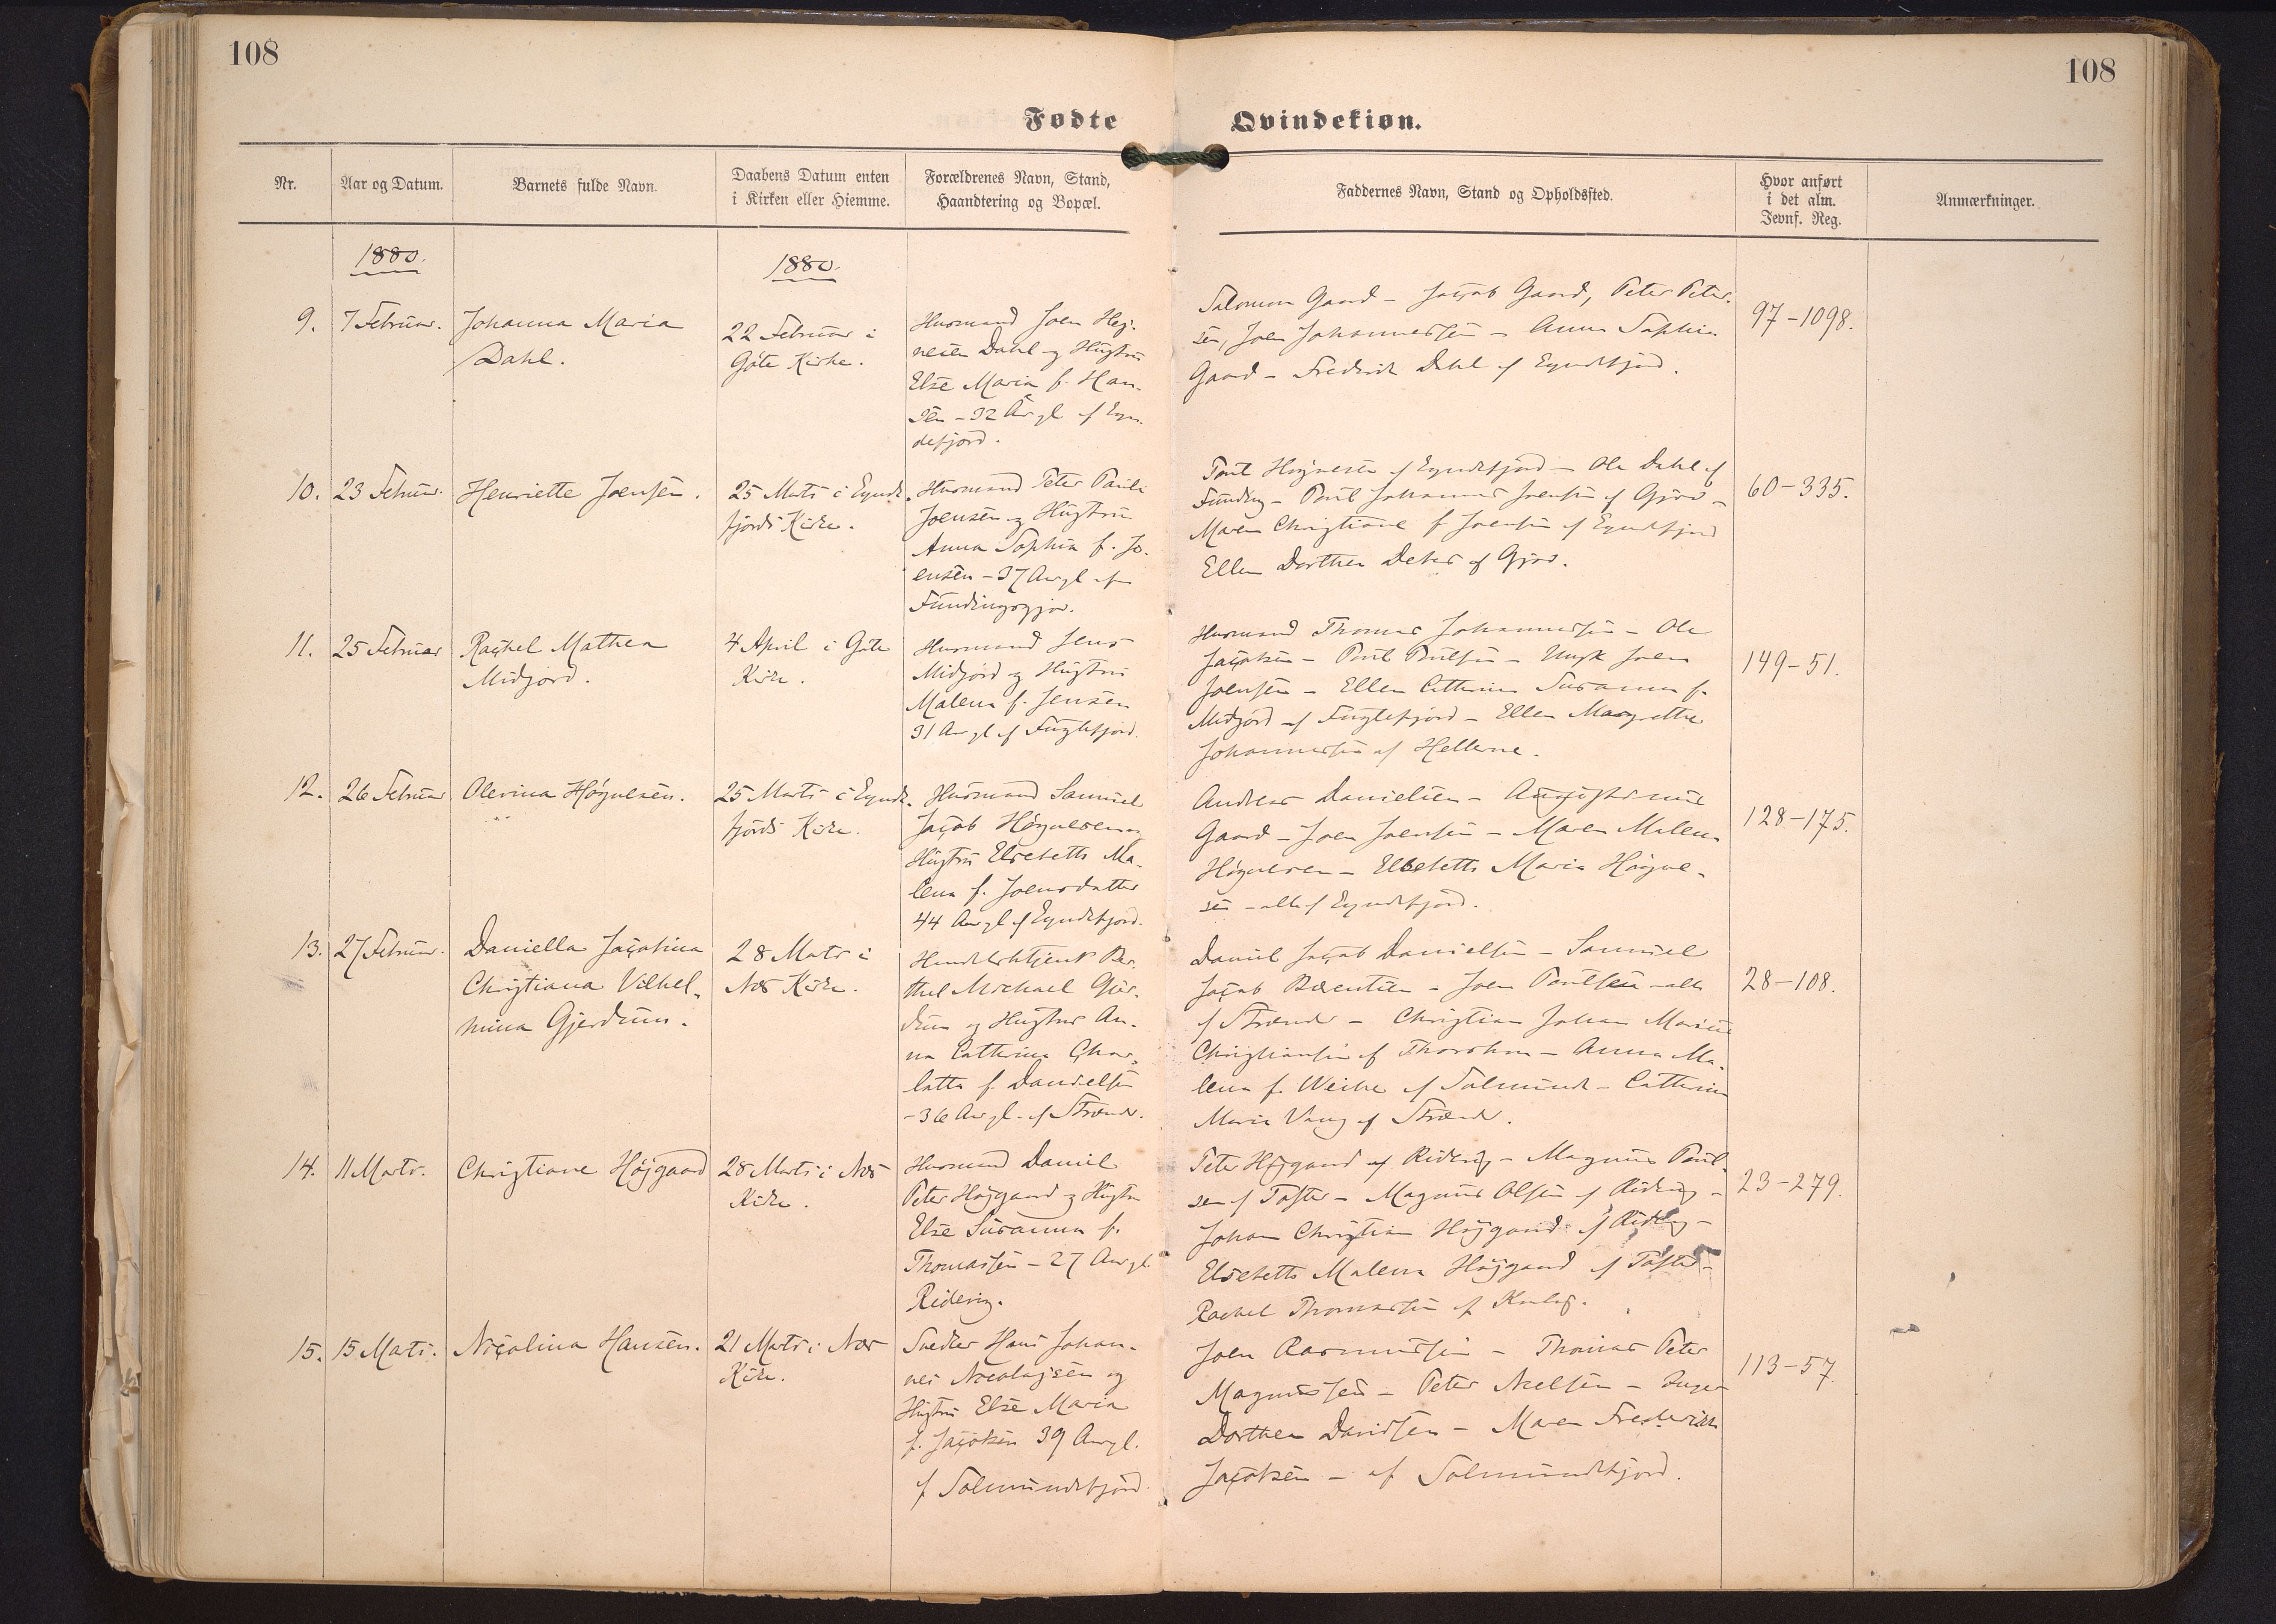 108
108
Fødte
Qvindekiøn.
Nr.
Aar og Datum.
Barnets fulde Navn.
Daabens Datum enten
i Kirken eller Hiemme.
Forældrenes Navn, Stand,
Haandtering og Bopæl.
Faddernes Navn, Stand og Opholdssted.
Hvor anført
i det alm.
Jevnf. Reg.
Anmærkninger.
1880.
1880.
9.
7 Februar.
Johanna Maria
Dahl.
22 Februar i
Göte Kirke.
Husmand Joen Høj-
nesen Dahl og Hustru
Else Maria f. Han-
sen - 32 Aar gl af Eyn-
defjord.
Salomon Gaard - Jacob Gaard, Peter Peter-
sen, Joen Johannessen - Anna Sophia
Gaard - Fredrik Dahl af Eyndefjord.
97-1098.
10.
23 Februar.
Henriette Joensen.
25 Marts i Eynde-
fjords Kirke.
Husmand Peter Pauli
Joensen og Hustru
Anna Sophia f. Jo-
ensen - 37 Aar gl af
Fundingsgjov.
Poul Højnesen af Eyndefjord - Ole Dahl af
Funding - Poul Johannes Joensen af Gjov -
Maren Christiane f Joensen af Eyndefjord
Ellen Dorthea Debes af Gjov.
60-335.
11.
25 Februar
Rachel Mathea
Midjord.
4 April i Göte
Kirke.
Husmand Jens
Midjord og Hustru
Malena f. Jensen
31 Aar gl af Fuglefjord.
Husmand Thomas Johannessen - Ole
Jacobsen - Poul Poulsen - Ungk Joen
Joensen - Ellen Cathrina Susanna f.
Midjord af Fuglefjord - Ellen Margrethe
Johannessen af Hellerne.
149-51.
12.
26 Februar
Olevina Højnesen.
25 Marts i Eynde-
fjords Kirke.
Husmand Samuel
Jacob Højnesen og
Hustru Elsebeth Ma-
lena f. Joensdatter
44 Aar gl af Eyndefjord.
Andreas Danielsen - Augustinus
Gaard - Joen Joensen - Maren Malena
Højnesen - Elsebeth Maria Højne-
sen - alle af Eyndefjord.
128-175.
13.
27 Februar.
Daniella Jacobina
Christiana Vilhel-
mina Gjerdum.
28 Marts i
Næs Kirke.
Handelsbetjent Ber-
thel Michael Gjer-
dum og Hustru An-
na Cathrina Char-
lotta f. Danielsen
- 36 Aar gl. af Strænder.
Daniel Jacob Danielsen - Samuel
Jacob Berentsen - Joen Poulsen - alle
af Strænder - Christian Johan Marius
Christiansen af Thorshavn - Anna Ma-
lena f. Weihe af Salmunde - Cathrina
Maria Vang af Strænder.
28-108.
14.
11 Marts.
Christiane Højgaard
28 Marts i Næs
Kirke.
Husmand Daniel
Peter Højgaard og Hustru
Else Susanna f.
Thomassen - 27 Aar gl.
Ridevig.
Peter Højgaard af Ridevig - Magnus Poul-
sen af Tofter - Magnus Olsen af Ridevig -
Johan Christian Højgaard af Ridevig -
Elsebeth Malena Højgaard af Tofter -
Rachel Thomassen af
23-279.
15.
15 Marts.
Nicolina Hansen.
21 Marts i Næs
Kirke.
Snedker Hans Johan-
nes Nicolajsen og
Hustru Else Maria
f. Jacobsen 39 Aar gl.
af Salmundefjord.
Joen Rasmussen - Thomas Peter
Magnussen - Peter Nielsen - Inger
Dorthea Davidsen - Maren Frederikke
Jacobsen - af Salmundefjord.
113-57